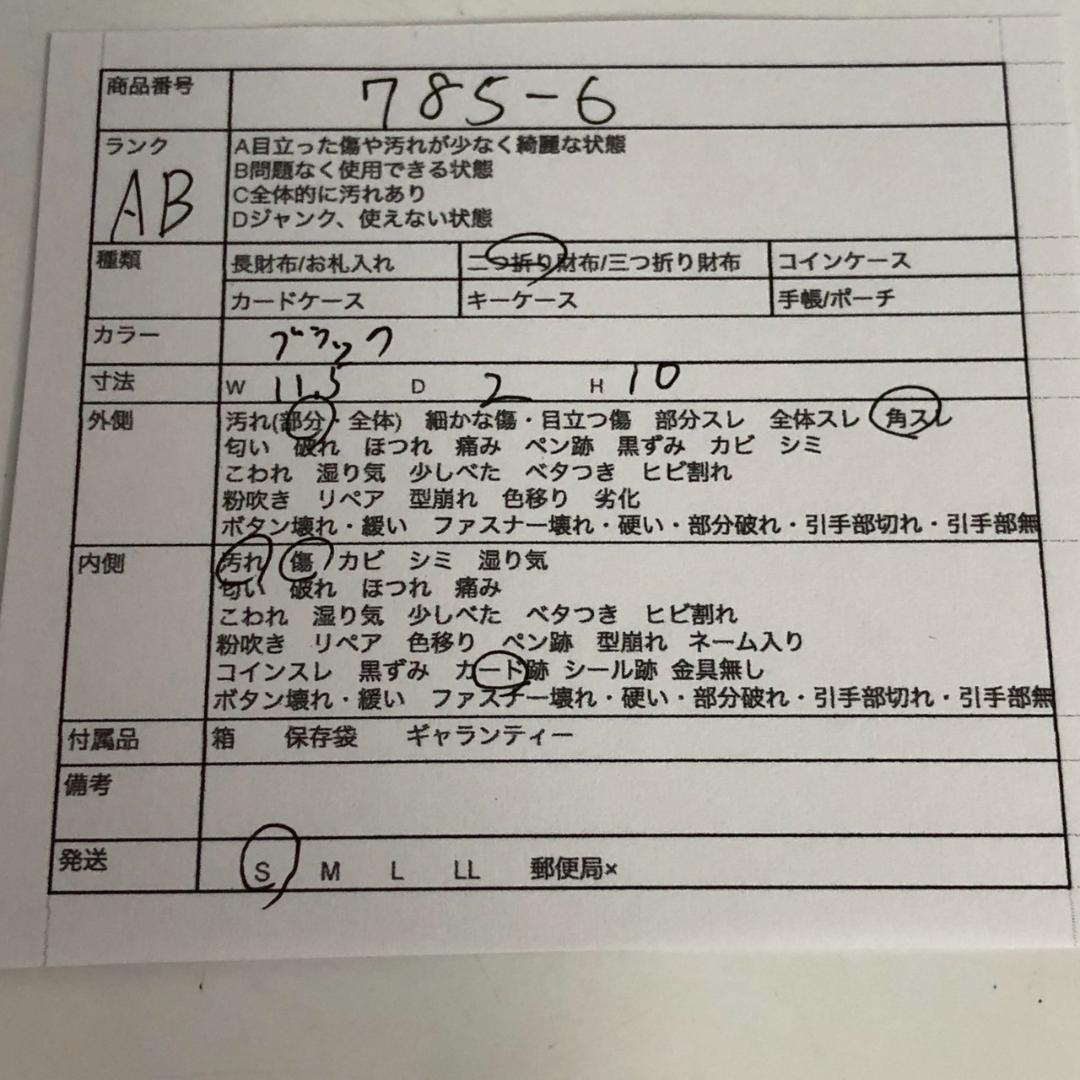 商品番号 785-6
ランク AB
A目立った傷や汚れが少なく綺麗な状態
B問題なく使用できる状態
C全体的に汚れあり
Dジャンク、使えない状態
種類 長財布/お札入れ 二つ折り財布/三つ折り財布 コインケース
カードケース キーケース 手帳/ポーチ
カラー ブラック
寸法 W 11.5 D 2 H 10
外側 汚れ(部分・全体) 細かな傷・目立つ傷 部分スレ 全体スレ 角スレ
匂い 破れ ほつれ 痛み ペン跡 黒ずみ カビ シミ
こわれ 湿り気 少しべた ベタつき ヒビ割れ
粉吹き リペア 型崩れ 色移り 劣化
ボタン壊れ・緩い ファスナー壊れ・硬い・部分破れ・引手部切れ・引手部無
内側 汚れ 傷 カビ シミ 湿り気
匂い 破れ ほつれ 痛み
こわれ 湿り気 少しべた ベタつき ヒビ割れ
粉吹き リペア 色移り ペン跡 型崩れ ネーム入り
コインスレ 黒ずみ カード跡 シール跡 金具無し
ボタン壊れ・緩い ファスナー壊れ・硬い・部分破れ・引手部切れ・引手部無
付属品 箱 保存袋 ギャランティー
備考
発送 S M L LL 郵便局×